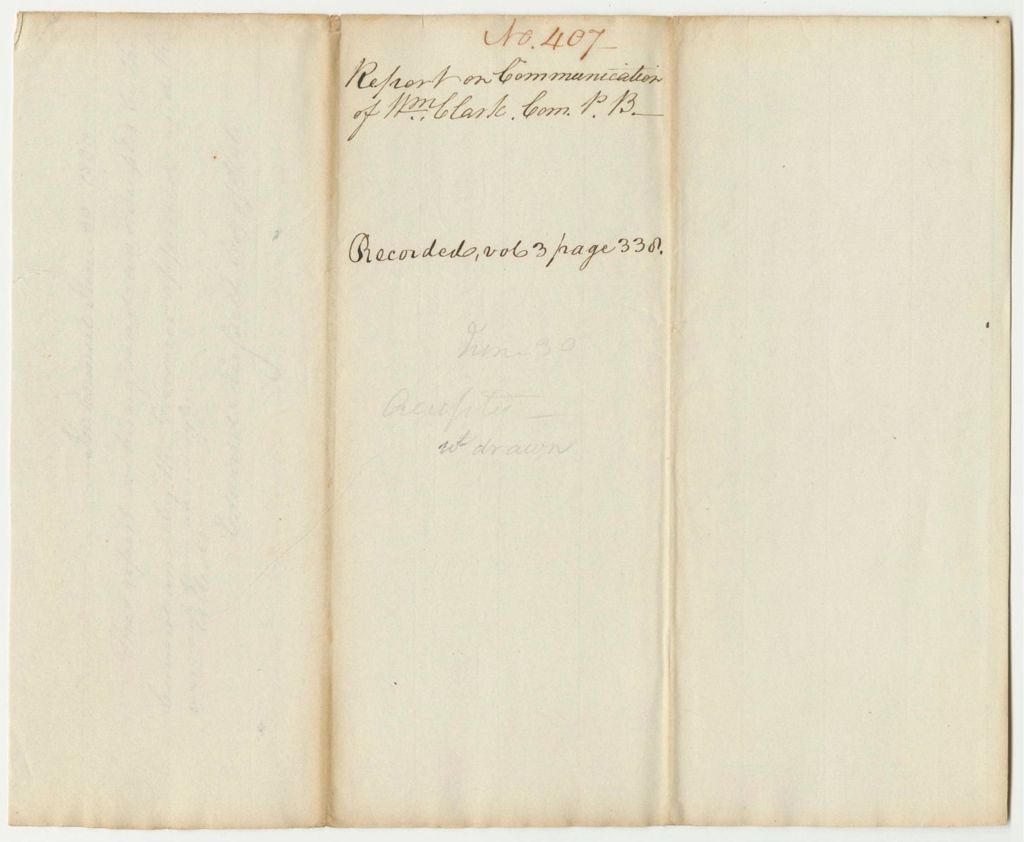 No. 407
Report on Communication
of Wm. Clark. Com. P. B.
Recorded, vol 3 page 338.
June 30
Accepted
wt drawn